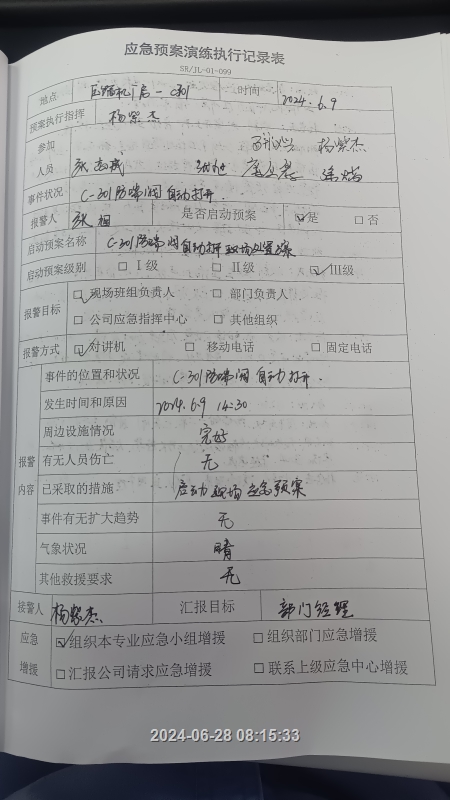 应急预案演练执行记录表
SR/JL-01-099
地点 压缩机厂房-C301 时间 2024.6.9
预案执行指挥 杨紫杰
参加人员 杨紫杰
事件状况 C-301防喘阀自动打开.
报警人 张旭 是否启动预案 ☑是 □否
启动预案名称 C-301防喘阀自动打开现场处置方案
启动预案级别 □Ⅰ级 □Ⅱ级 ☑Ⅲ级
报警目标 ☑现场班组负责人 □部门负责人
□公司应急指挥中心 □其他组织
报警方式 ☑对讲机 □移动电话 □固定电话
报警内容
事件的位置和状况 C-301防喘阀自动打开.
发生时间和原因 2024.6.9 14:30
周边设施情况 完好
有无人员伤亡 无
已采取的措施 启动现场应急预案
事件有无扩大趋势 无
气象状况 晴
其他救援要求 无
接警人 杨紫杰 汇报目标 部门经理
应急增援 ☑组织本专业应急小组增援 □组织部门应急增援
□汇报公司请求应急增援 □联系上级应急中心增援
2024-06-28 08:15:33